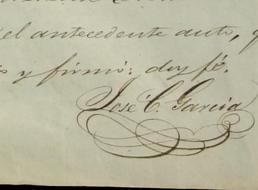 el antecedente auto, q
y firmó: doy fé.
José C. Garcia